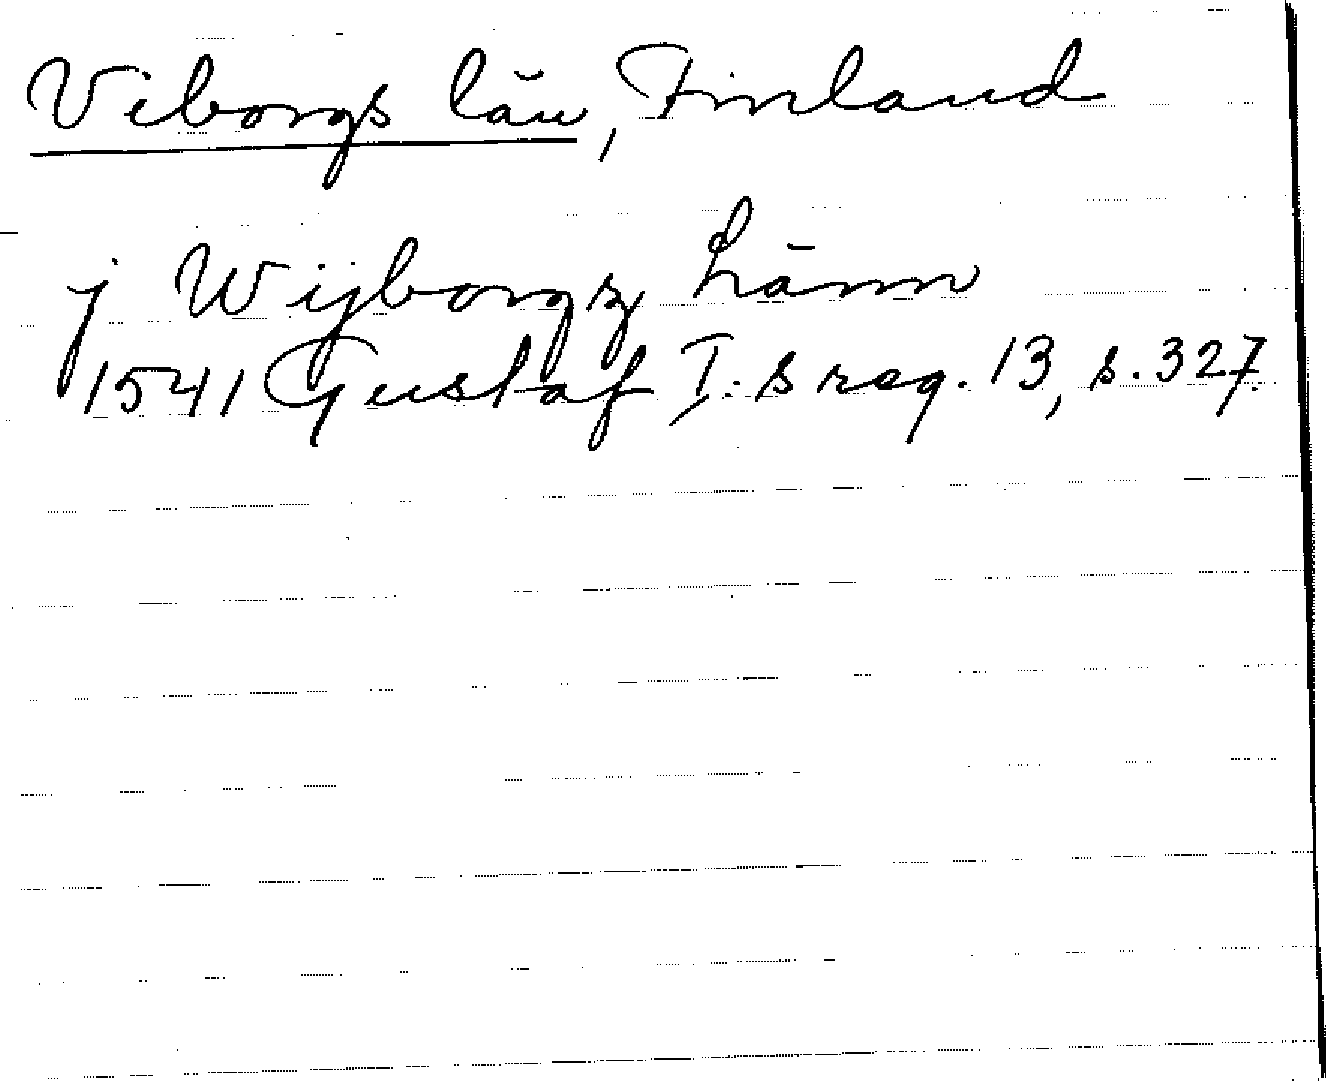 Viborgs län, Finland
j Wijborgz Länn
1541 Gustaf I:s reg. 13, s. 327.